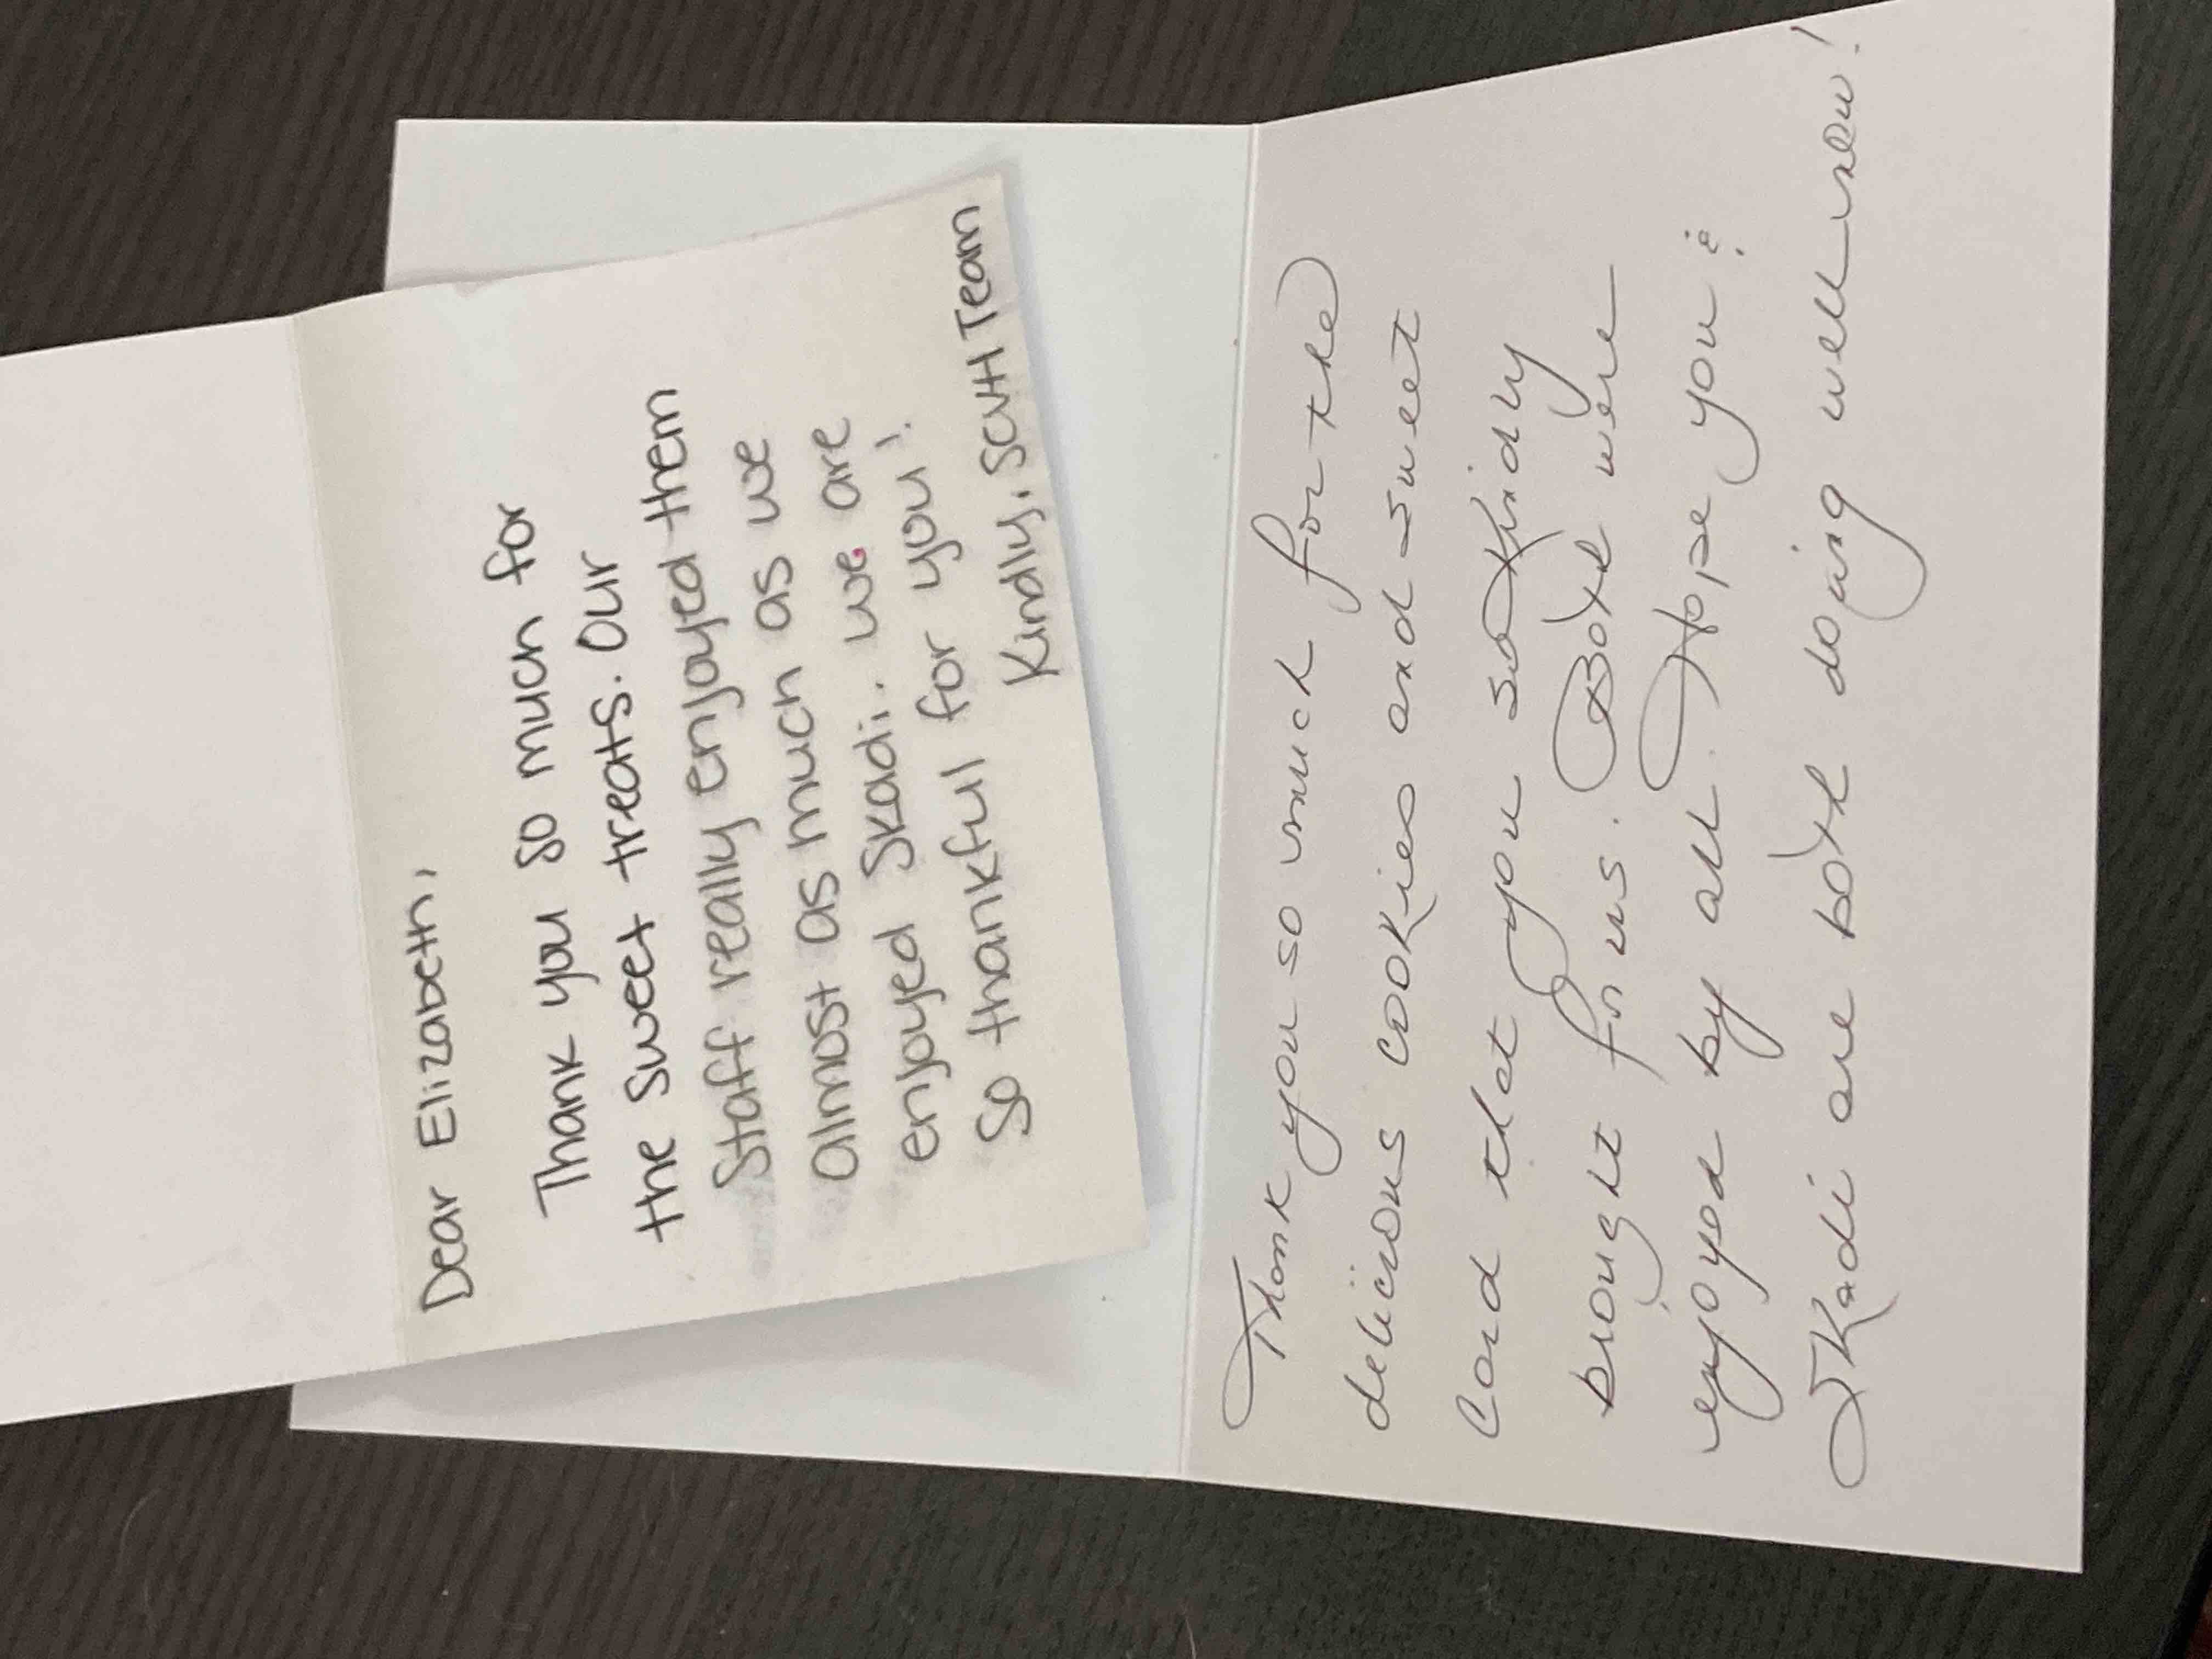 Dear Elizabeth,
Thank you so much for
the sweet treats. Our
staff really enjoyed them
almost as much as we
enjoyed Skadi. We are
so thankful for you!
Kindly, SCVH Team
Thank you so much for the
delicious cookies and sweet
card that you so kindly
brought for us. Both were
enjoyed by all. Hope you &
Skadi are both doing well now!